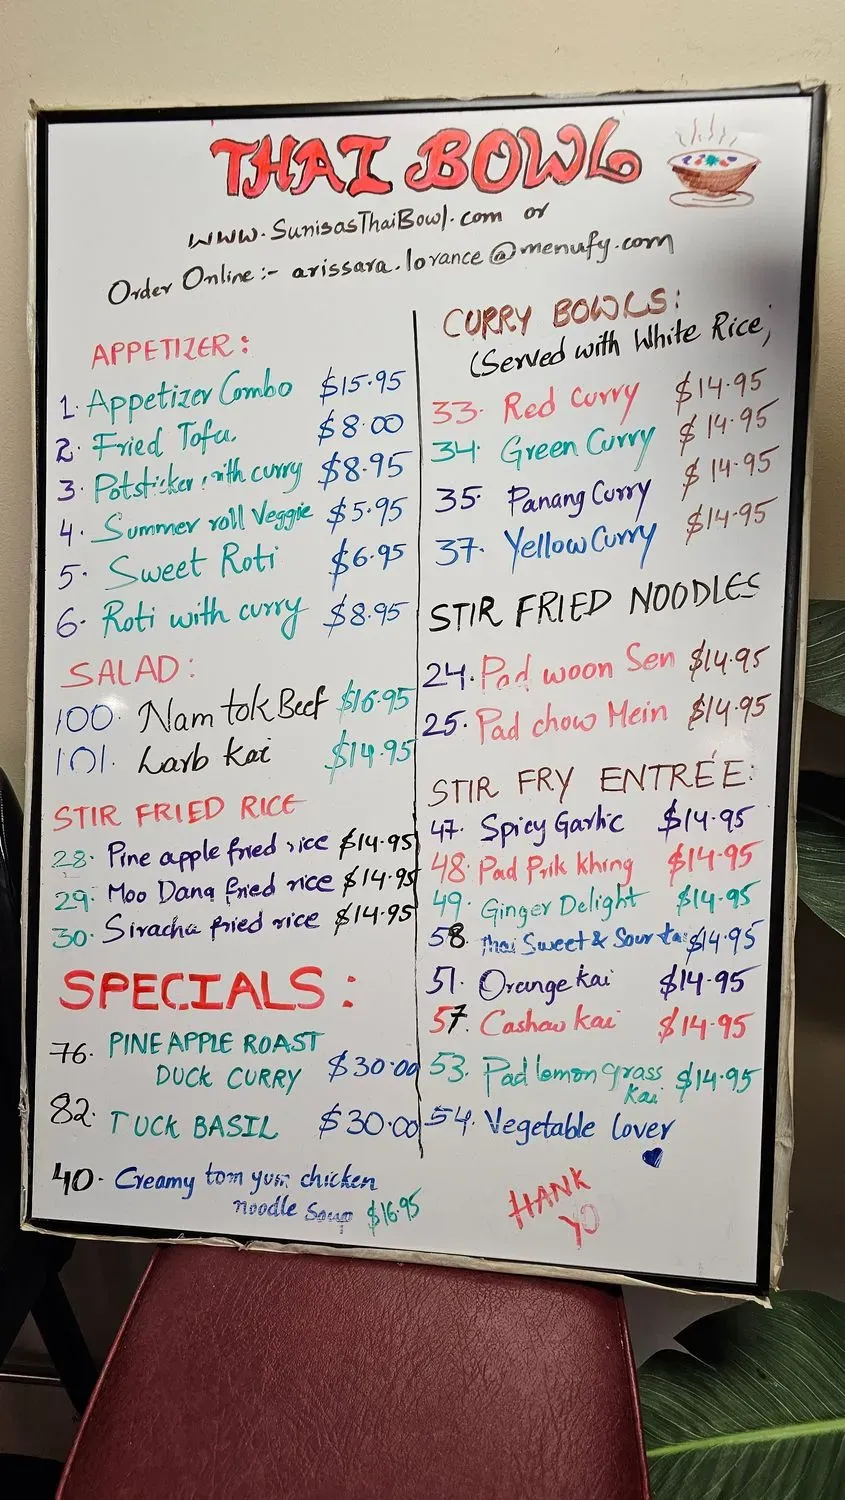 THAI BOWL
www.SunisasThaiBowl.com or
Order Online:- arissara.lorance@menufy.com
APPETIZER:
1. Appetizer Combo $15.95
2. Fried Tofu. $8.00
3. Potsticker with curry $8.95
4. Summer roll Veggie $5.95
5. Sweet Roti $6.95
6. Roti with curry $8.95
SALAD:
100. Nam tok Beef $16.95
101. Larb kai $14.95
STIR FRIED RICE
28. Pine apple fried rice $14.95
29. Moo Dang fried rice $14.95
30. Siracha fried rice $14.95
SPECIALS:
76. PINE APPLE ROAST
DUCK CURRY $30.00
82. TUCK BASIL $30.00
40. Creamy tom yum chicken
noodle Soup $16.95
CURRY BOWLS:
(Served with White Rice)
33. Red Curry $14.95
34. Green Curry $14.95
35. Panang Curry $14.95
37. Yellow Curry $14.95
STIR FRIED NOODLES
24. Pad woon Sen $14.95
25. Pad chow Mein $14.95
STIR FRY ENTRÉE:
47. Spicy Garlic $14.95
48. Pad Prik Khing $14.95
49. Ginger Delight $14.95
58. Thai Sweet & Sour kai $14.95
51. Orange kai $14.95
57. Cashaw kai $14.95
53. Pad lemon grass $14.95
kai
54. Vegetable lover
HANK
YO